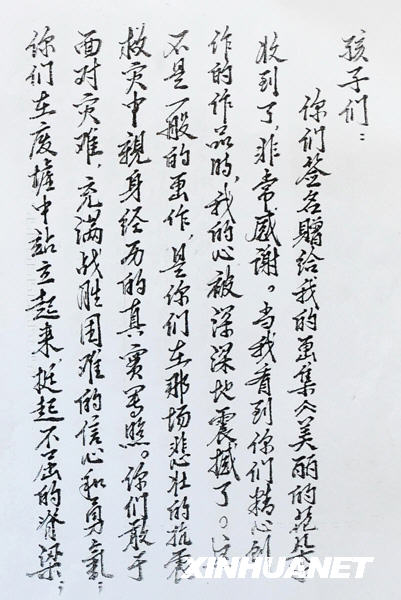 孩子们：
你们签名赠给我的画集《美丽的花朵》
收到了，非常感谢。当我看到你们精心创
作的作品时，我的心被深深地震撼了。这
不是一般的画作，是你们在那场悲壮的抗震
救灾中親身经历的真实写照。你们敢于
面对灾难，充满战胜困难的信心和勇气；
你们在废墟中站立起来，挺起不屈的脊梁；
XINHUANET